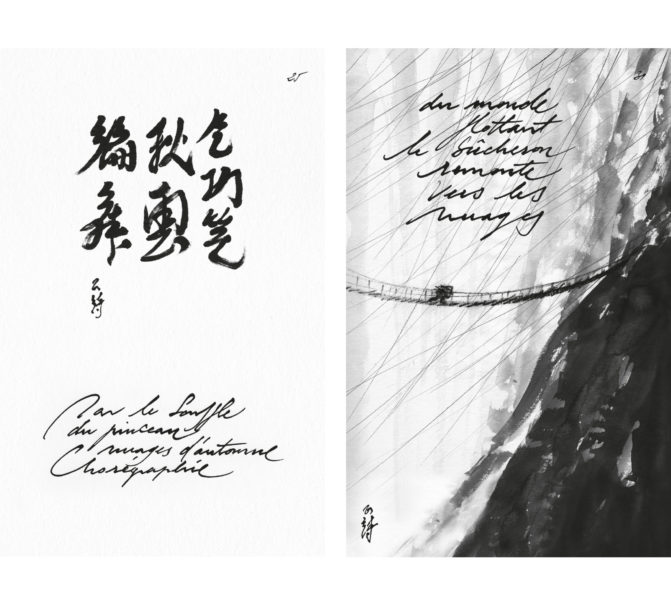 25
气功笔
秋雲
編舞
Par le Souffle
du pinceau
nuages d'automne
Chorégraphie
du monde
flottant
le bûcheron
remonte
vers les
nuages